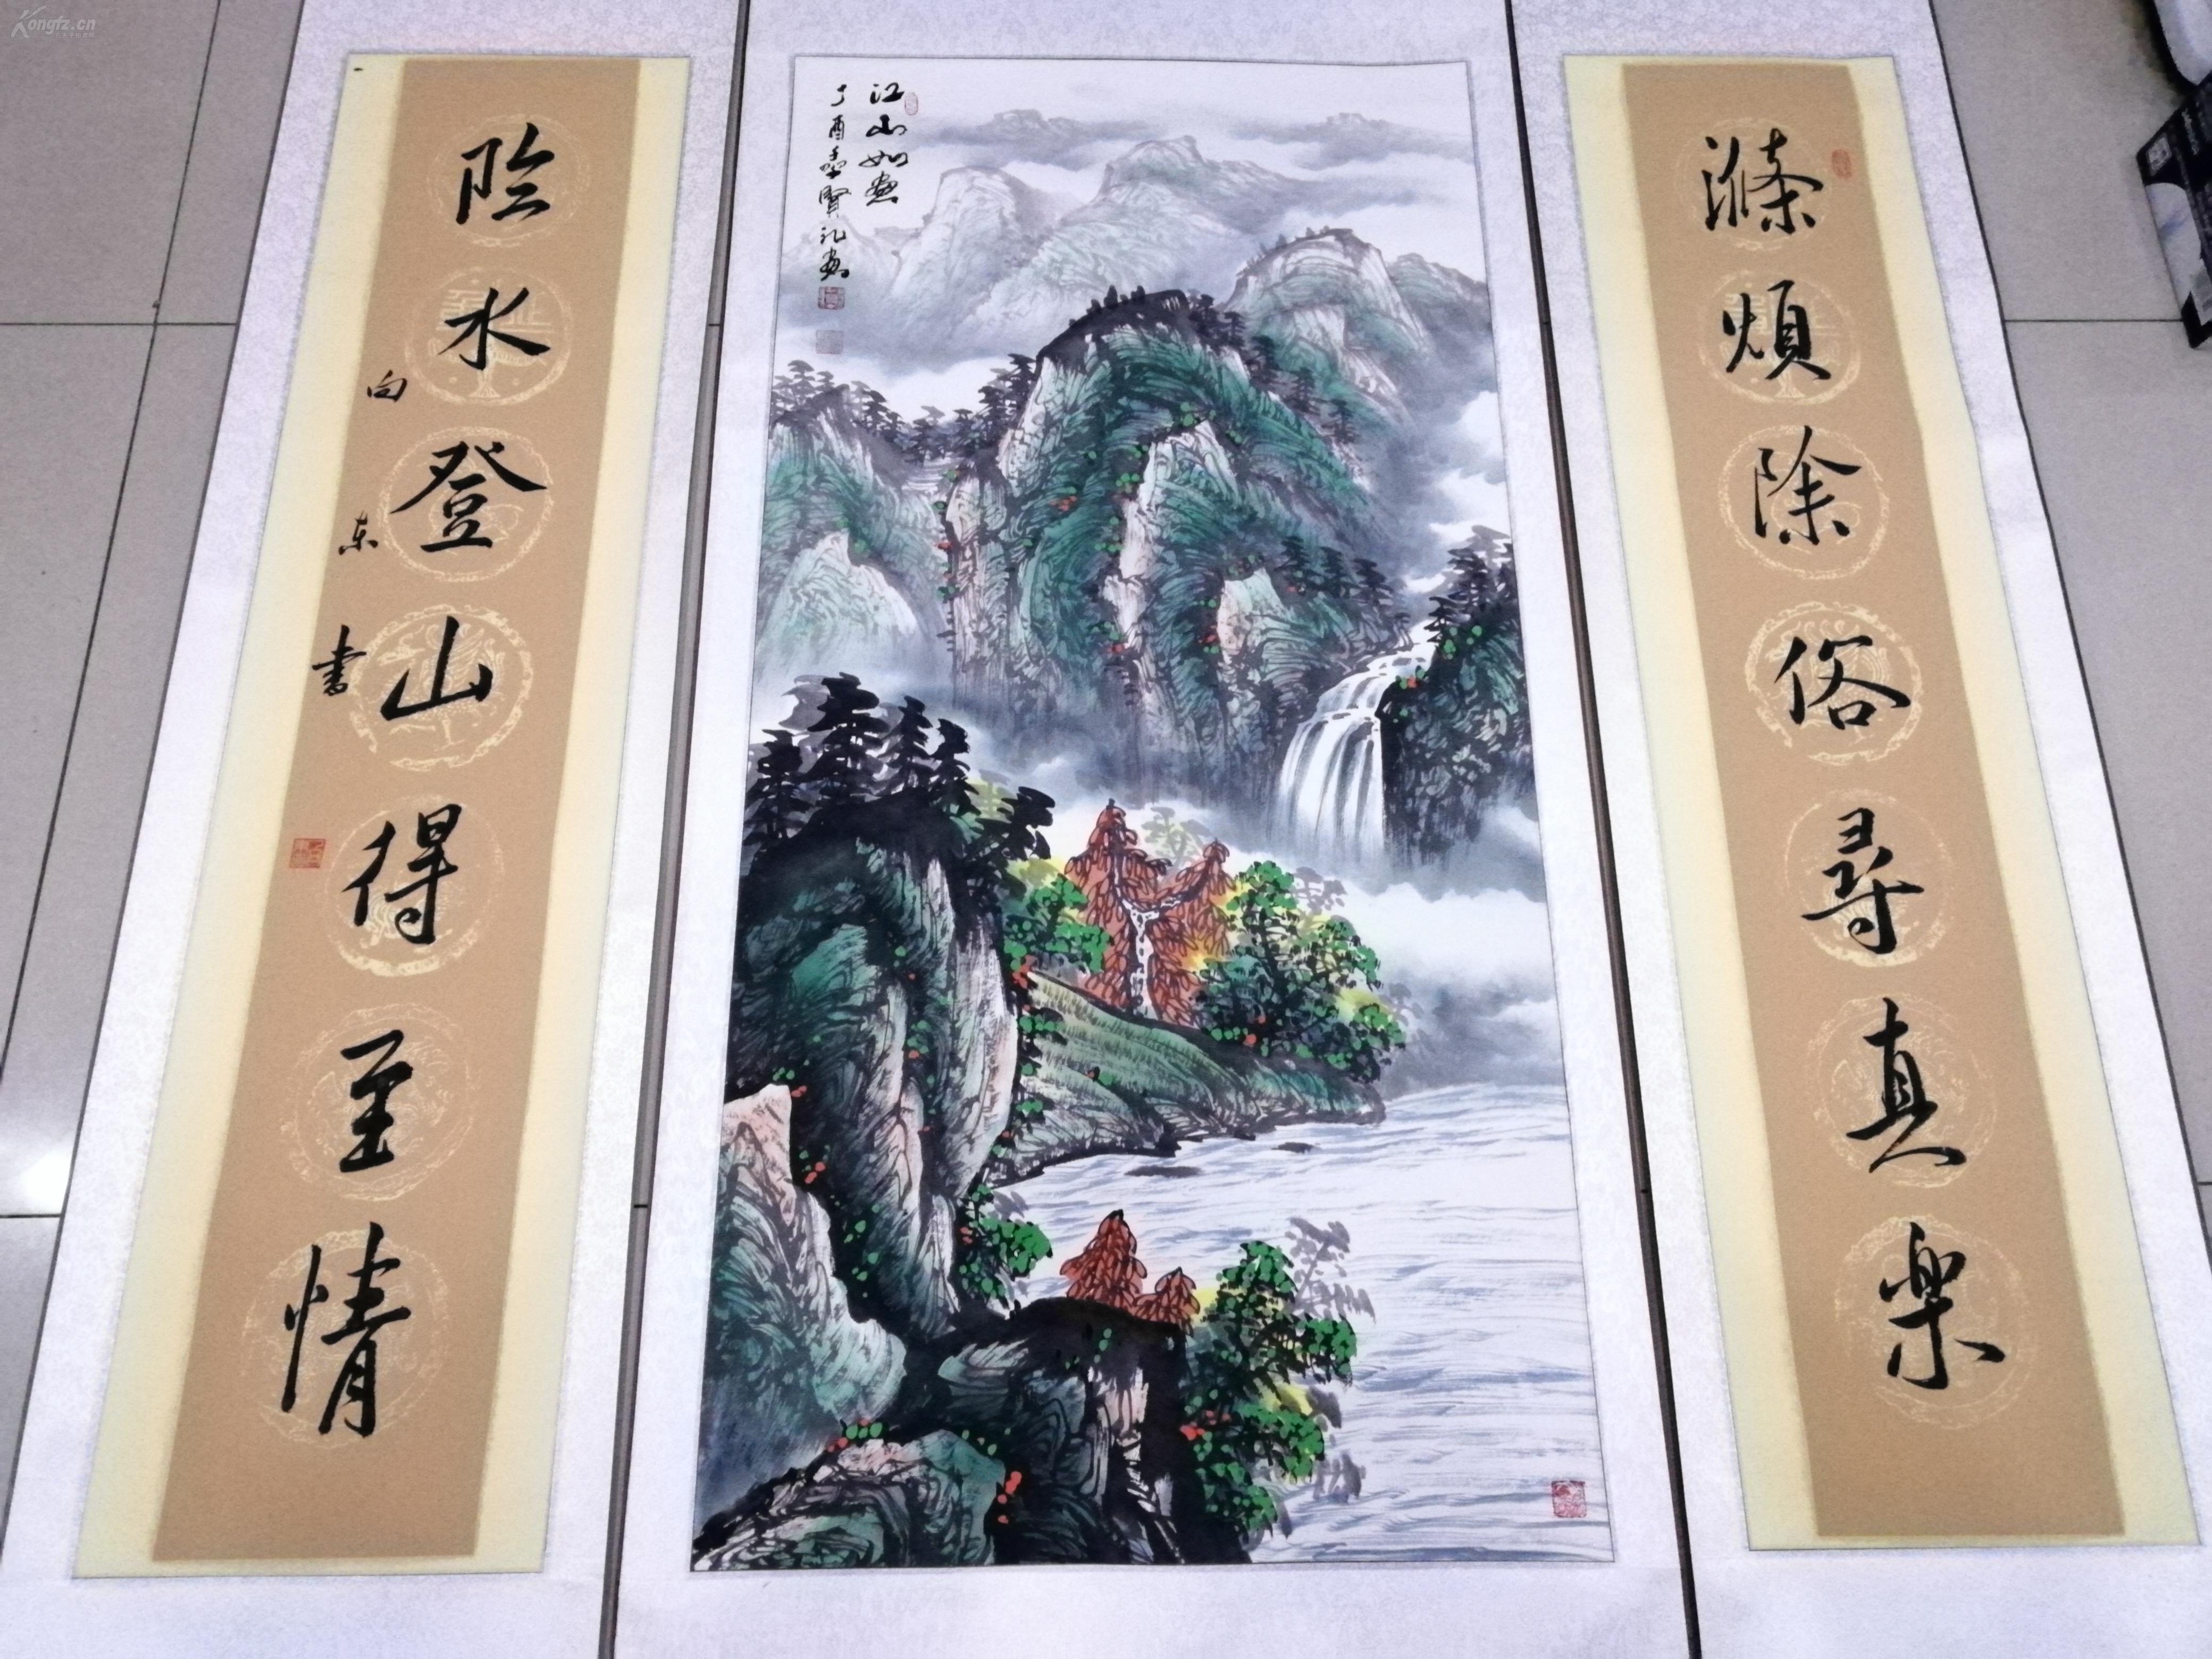 滌煩除俗尋真樂
江山如畫
丁酉年賢礼畫
臨水登山得至情
向东書
Kongfz.cn